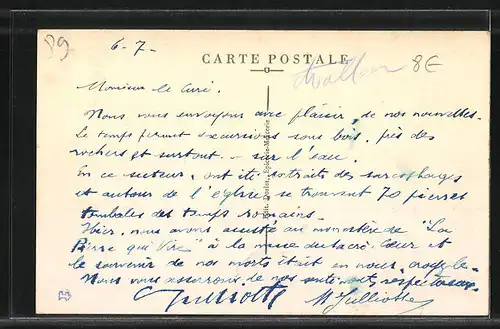 89
6-7-
8€
CARTE POSTALE
Avallon
Monsieur le Curé.
Nous vous envoyons avec plaisir de nos nouvelles.
Le temps permet excursions sous bois, près des
rochers et surtout - sur l'eau.
En ce secteur, ont été extraits des sarcophages
et autour de l'église se trouvent 70 pierres
tombales des temps romains.
Hier, nous avons assisté au monastère de "La
Pierre qui Vire" à la messe du Sacré Cœur et
le souvenir de nos morts était en nous,
Nous vous assurons de nos sentiments respectueux
Julliotte M Julliotte
Edit. Dorlot, Epicerie-Mercerie